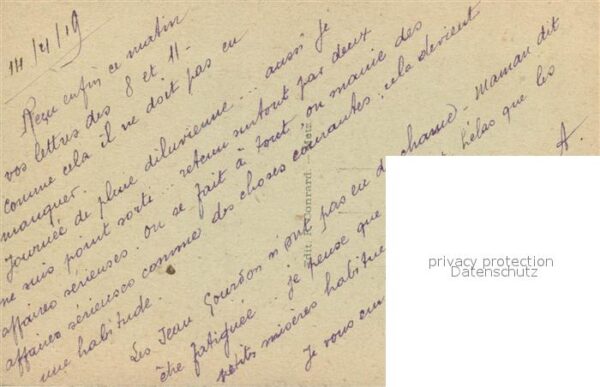 14/4/19
Reçu enfin ce matin
vos lettres des 8 et 11 -
comme cela il ne doit pas en
manquer.
Journée de pluie diluvienne... aussi je
ne suis point sorti.. retenu surtout par deux
affaires sérieuses. On se fait à tout, on manie des
affaires sérieuses comme des choses courantes: cela devient
une habitude.
Les Jean Gourdon n'ont pas eu de chance - Maman dit
être fatiguée... je pense que hélas que les
petits misères habitue
Je vous em
A.
Edit. A. Conrard. - Metz
privacy protection
Datenschutz